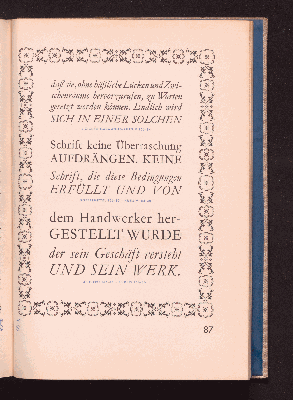 daß sie, ohne häßliche Lücken und Zwi-
schenräume hervorzurufen, zu Worten
gesetzt werden können. Endlich wird
SICH IN EINER SOLCHEN
Schrift keine Überraschung
AUFDRÄNGEN. KEINE
Schrift, die diese Bedingungen
ERFÜLLT UND VON
dem Handwerker her-
GESTELLT WURDE
der sein Geschäft versteht
UND SEIN WERK.
87